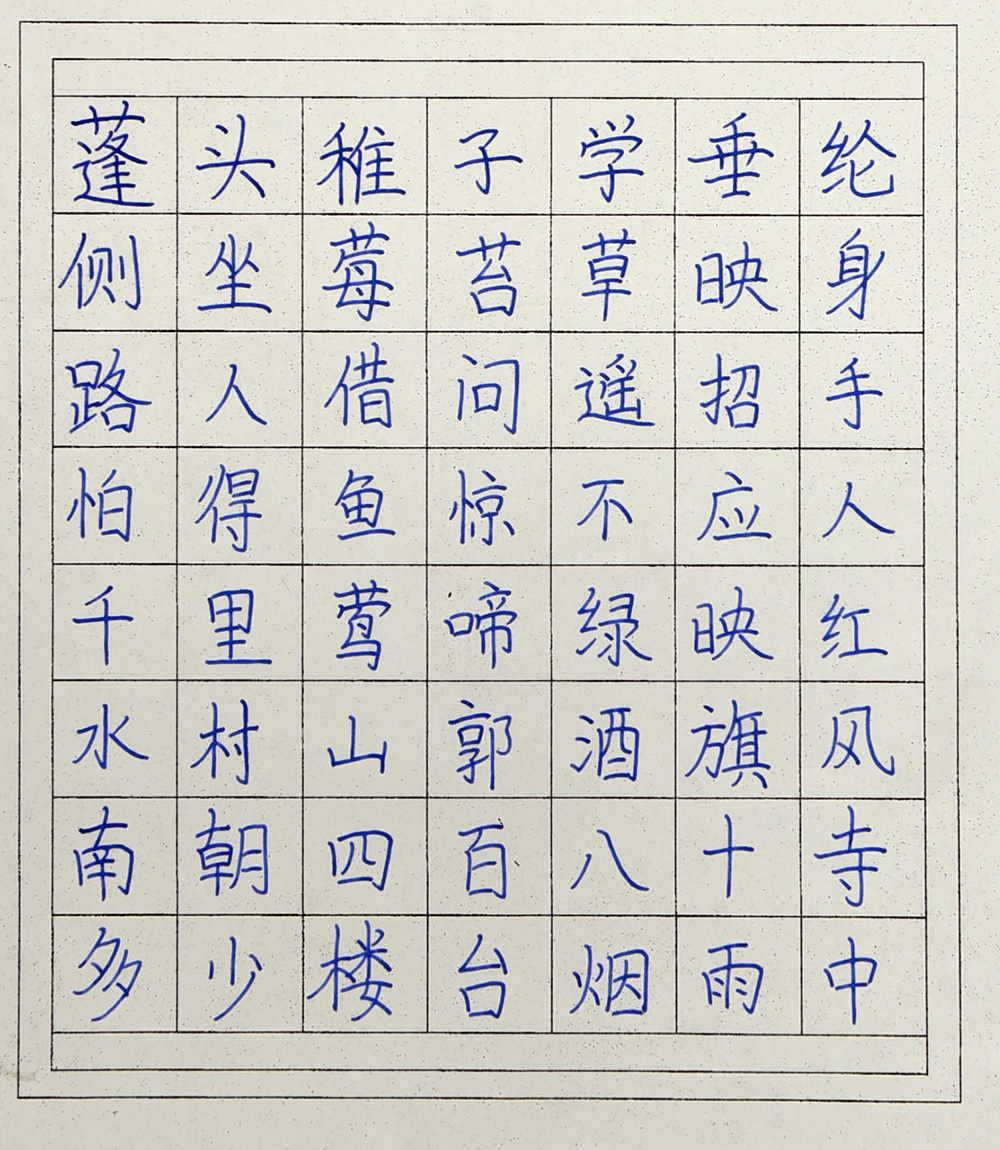 蓬头稚子学垂纶
侧坐莓苔草映身
路人借问遥招手
怕得鱼惊不应人
千里莺啼绿映红
水村山郭酒旗风
南朝四百八十寺
多少楼台烟雨中